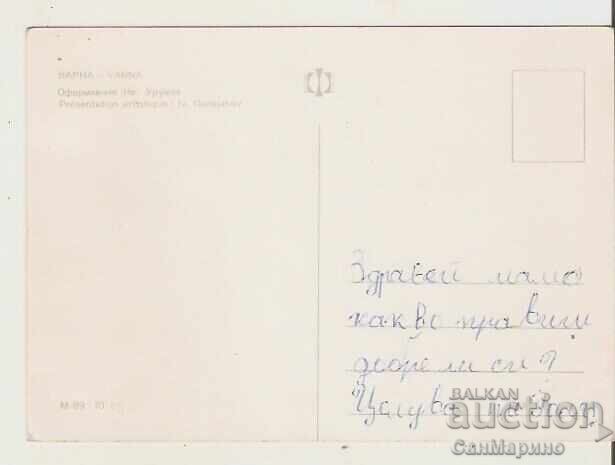 ВАРНА - VARNA
Оформление Ив.
Présentation artistique: Iv.
Здравей мамо
какво правиш
добре ли си?
Целува
М-69
BALKAN
auction
СанМарино